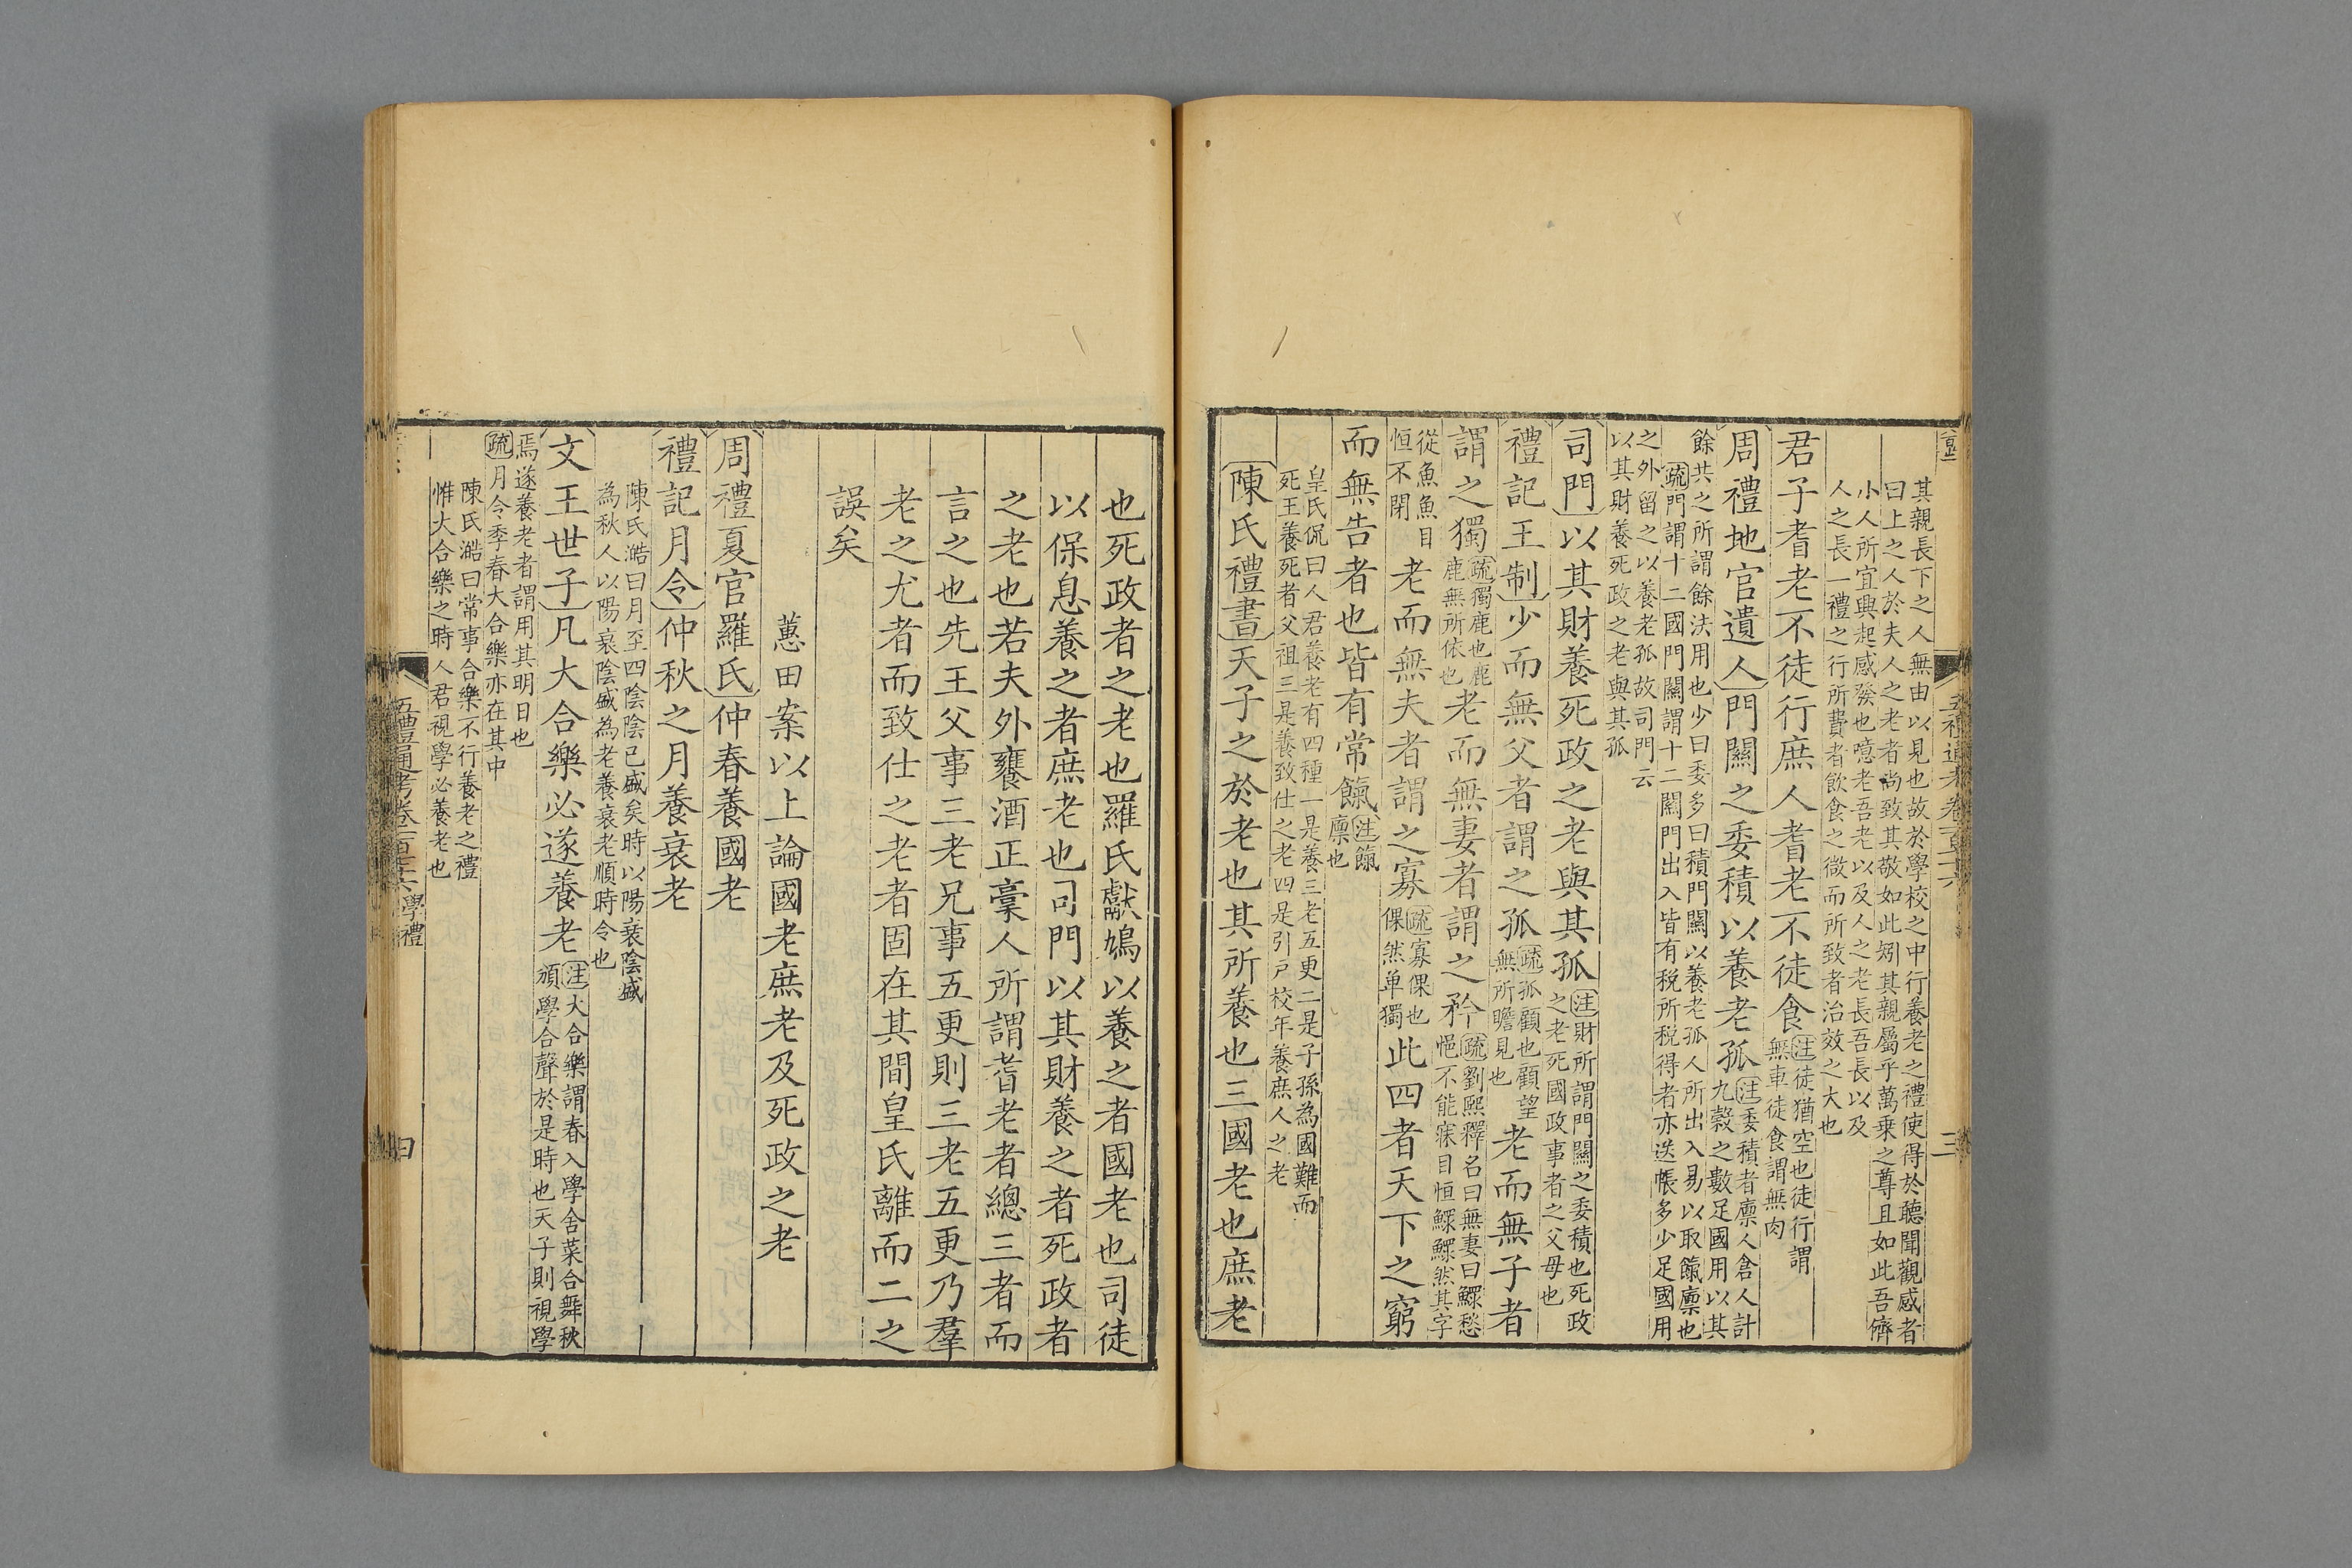 其親長下之人無由以見也故於學校之中行養老之禮使得於聽聞觀感者
曰上之人於夫人之老者尚致其敬如此矧其親屬乎萬乗之尊且如此吾儕
小人所宜興起感發也噫老吾老以及人之老長吾長以及
人之長一禮之行所費者飲食之微而所致者治效之大也
君子耆老不徒行庶人耆老不徒食
注徒猶空也徒行謂
無車徒食謂無肉
周禮地官遺人門關之委積以養老孤
注委積者廩人倉人計
九穀之數足國用以其
餘共之所謂餘法用也少曰委多曰積門關以養老孤人所出入易以取餼廩也
疏門謂十二國門關謂十二關門出入皆有税所税得者亦送帳多少足國用
之外留之以養老孤故司門云
以其財養死政之老與其孤
司門以其財養死政之老與其孤
注財所謂門關之委積也死政
之老死國政事者之父母也
禮記王制少而無父者謂之孤
疏孤顧也顧望
無所瞻見也
老而無子者
謂之獨
疏獨鹿也鹿
鹿無所依也
老而無妻者謂之矜
疏劉熙釋名曰無妻曰鰥愁
悒不能寐目恒鰥鰥然其字
從魚魚目
恒不閉
老而無夫者謂之寡
疏寡倮也
倮然单獨
此四者天下之窮
而無告者也皆有常餼
注餼
廩也
皇氏侃曰人君養老有四種一是養三老五更二是子孫為國難而
死王養死者父祖三是養致仕之老四是引戸校年養庶人之老
陳氏禮書天子之於老也其所養也三國老也庶老
也死政者之老也羅氏獻鳩以養之者國老也司徒
以保息養之者庶老也司門以其財養之者死政者
之老也若夫外饔酒正稾人所謂耆老者總三者而
言之也先王父事三老兄事五更則三老五更乃羣
老之尤者而致仕之老者固在其間皇氏離而二之
誤矣
蕙田案以上論國老庶老及死政之老
周禮夏官羅氏仲春養國老
禮記月令仲秋之月養衰老
陳氏澔曰月至四陰陰已盛矣時以陽衰陰盛
為秋人以陽衰陰盛為老養衰老順時令也
文王世子凡大合樂必遂養老
注大合樂謂春入學舍菜合舞秋
頒學合聲於是時也天子則視學
焉遂養老者謂用其明日也
疏月令季春大合樂亦在其中
陳氏澔曰常事合樂不行養老之禮
惟大合樂之時人君視學必養老也
五禮通考卷一百七十六學禮